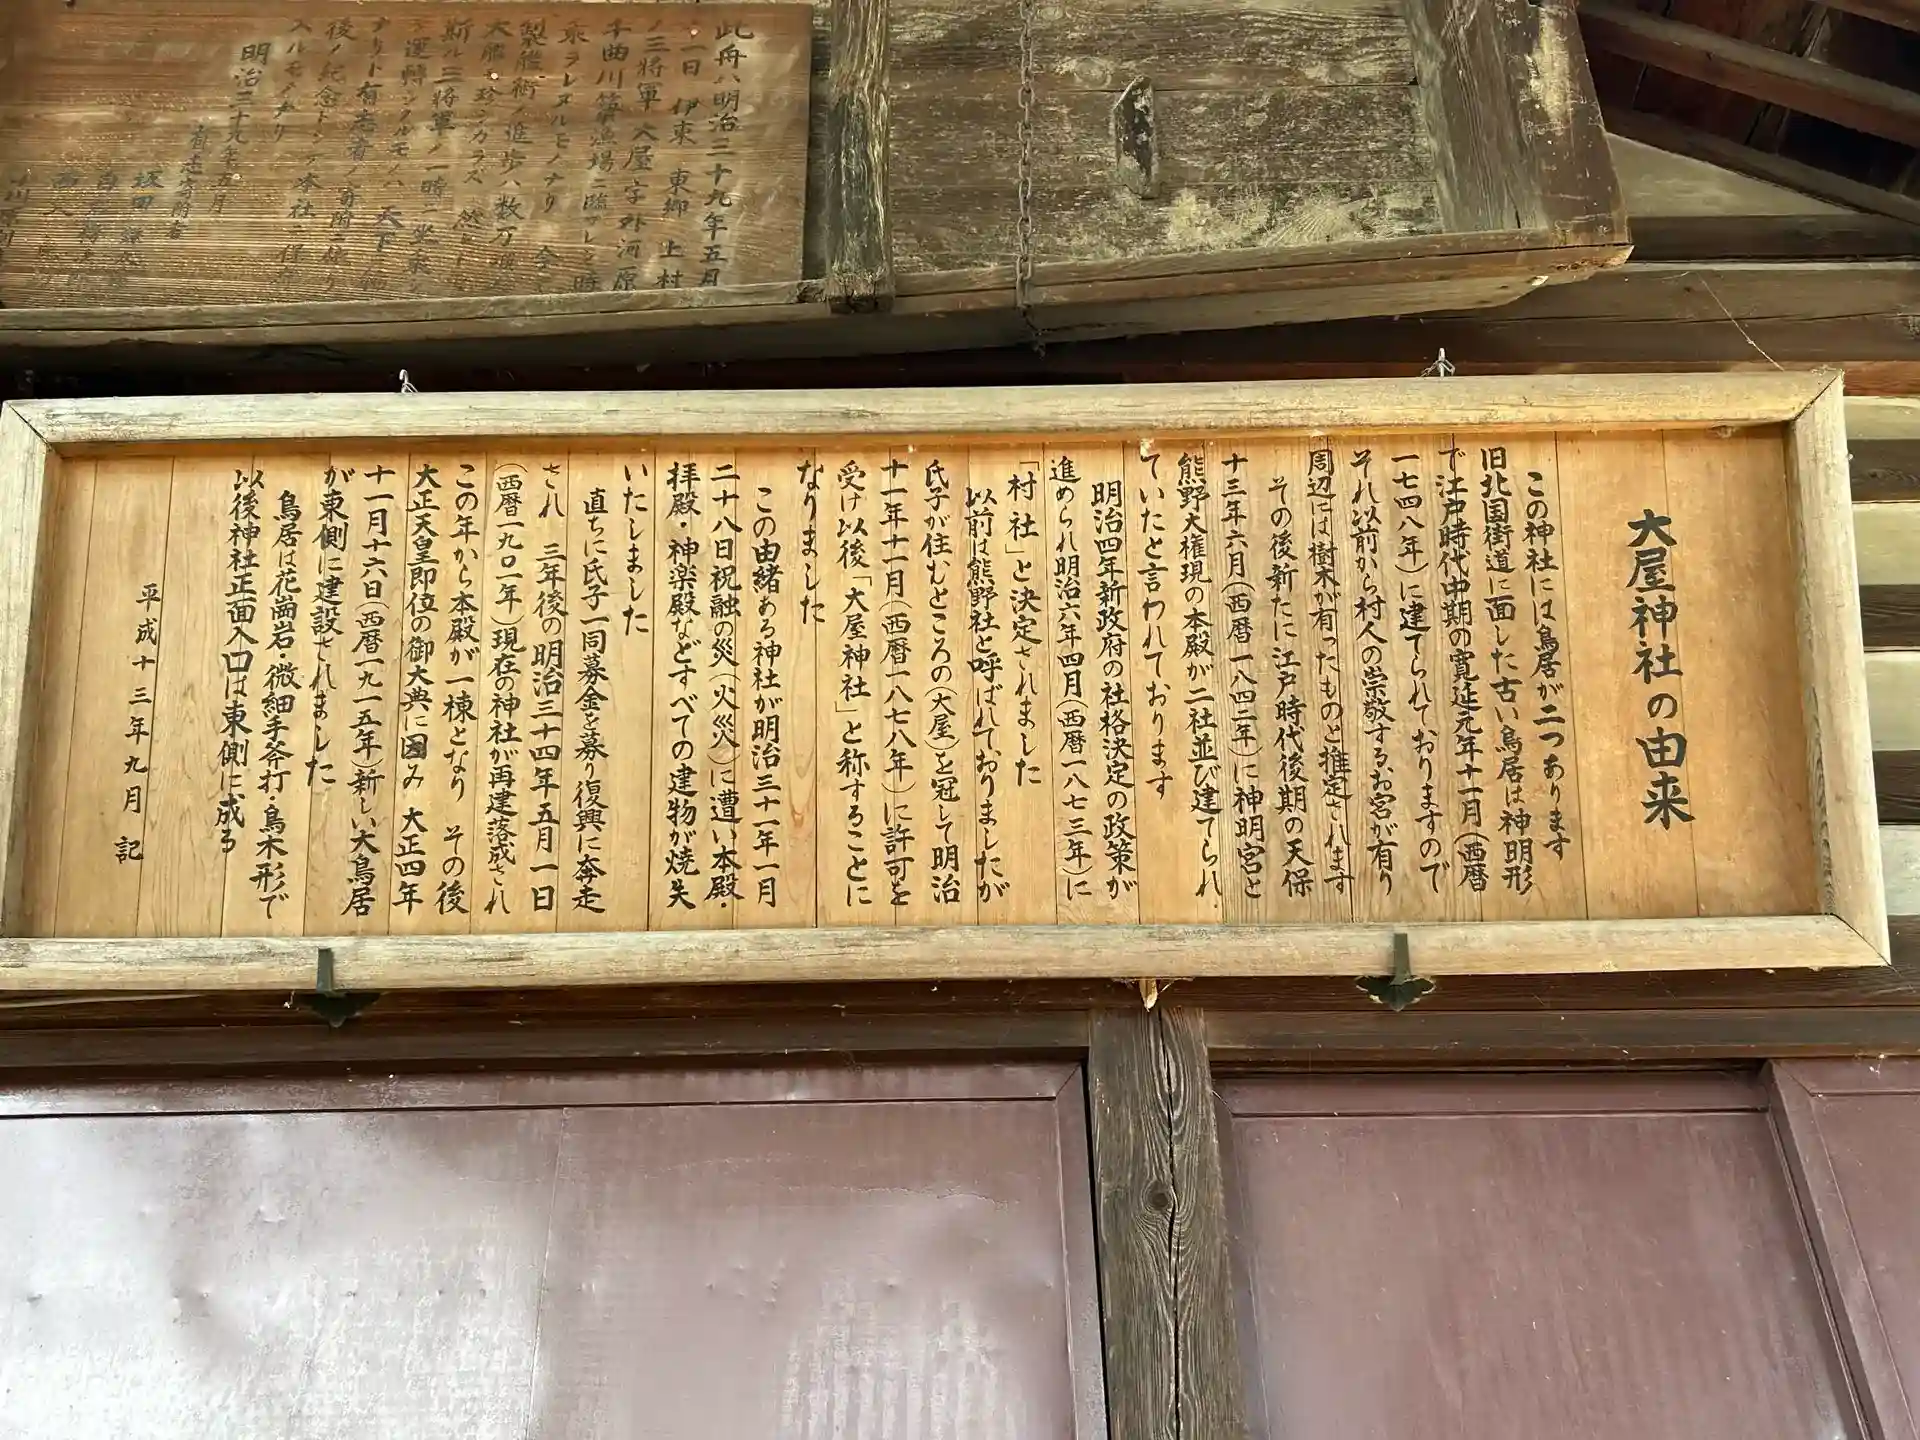 此舟ハ明治三十九年五月
一日伊東東郷上村
ノ三将軍大屋字外河原
千曲川漁場ニ臨マレシ時
乗ラレタルモノナリ
製艦術ノ進歩ハ数万
大艦モ珍シカラズ然レトモ
斯ル三将軍ノ一時ニ坐乗シ
運轉シタルモノハ天下
ナリト有志者ノ寄附ニ依リ
後ノ紀念トシテ本社ニ保存
スルモノナリ
明治三十九年五月
有志寄附者
坂田
大屋神社の由来
この神社には鳥居が二つあります
旧北国街道に面した古い鳥居は神明形
で江戸時代中期の寛延元年十一月(西暦
一七四八年)に建てられておりますので
それ以前から村人の崇敬するお宮が有り
周辺には樹木が有ったものと推定されます
その後新たに江戸時代後期の天保
十三年六月(西暦一八四二年)に神明宮と
熊野大権現の本殿が二社並び建てられ
ていたと言われております
明治四年新政府の社格決定の政策が
進められ明治六年四月(西暦一八七三年)に
「村社」と決定されました
以前は熊野社と呼ばれておりましたが
氏子が住むところの(大屋)を冠して明治
十一年十一月(西暦一八七八年)に許可を
受け以後「大屋神社」と称することに
なりました
この由緒ある神社が明治三十一年一月
二十八日祝融の災(火災)に遭い本殿・
拝殿・神楽殿などすべての建物が焼失
いたしました
直ちに氏子一同募金を募り復興に奔走
され 三年後の明治三十四年五月一日
(西暦一九〇一年)現在の神社が再建落成され
この年から本殿が一棟となり その後
大正天皇即位の御大典に因み 大正四年
十一月十六日(西暦一九一五年)新しい大鳥居
が東側に建設されました
鳥居は花崗岩・微細手斧打・鳥木形で
以後神社正面入口は東側に成る
平成十三年九月 記